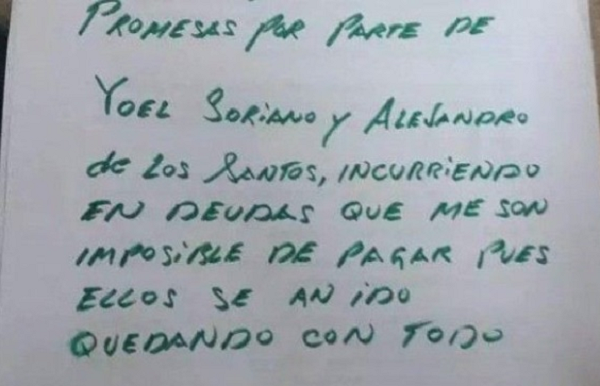 PROMESAS POR PARTE DE
YOEL SORIANO Y ALEJANDRO
de LOS SANTOS, INCURRIENDO
EN DEUDAS QUE ME SON
IMPOSIBLE DE PAGAR PUES
ELLOS SE AN IDO
QUEDANDO CON TODO